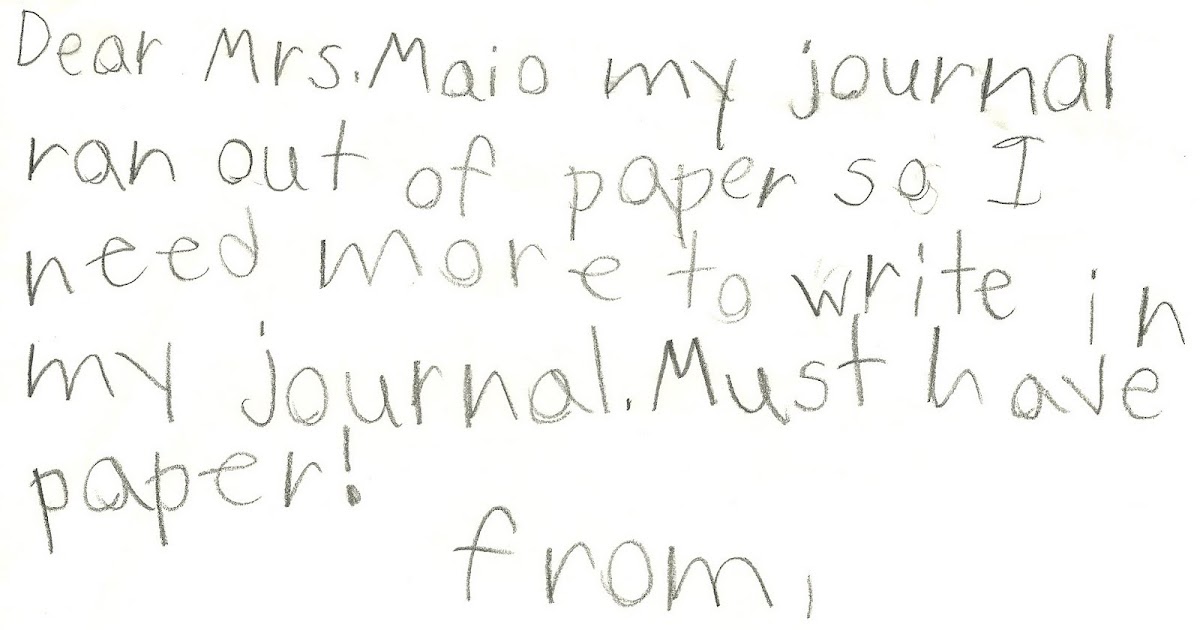 Dear Mrs.Maio my journal
ran out of paper so I
need more to write in
my journal.Must have
paper!
from,